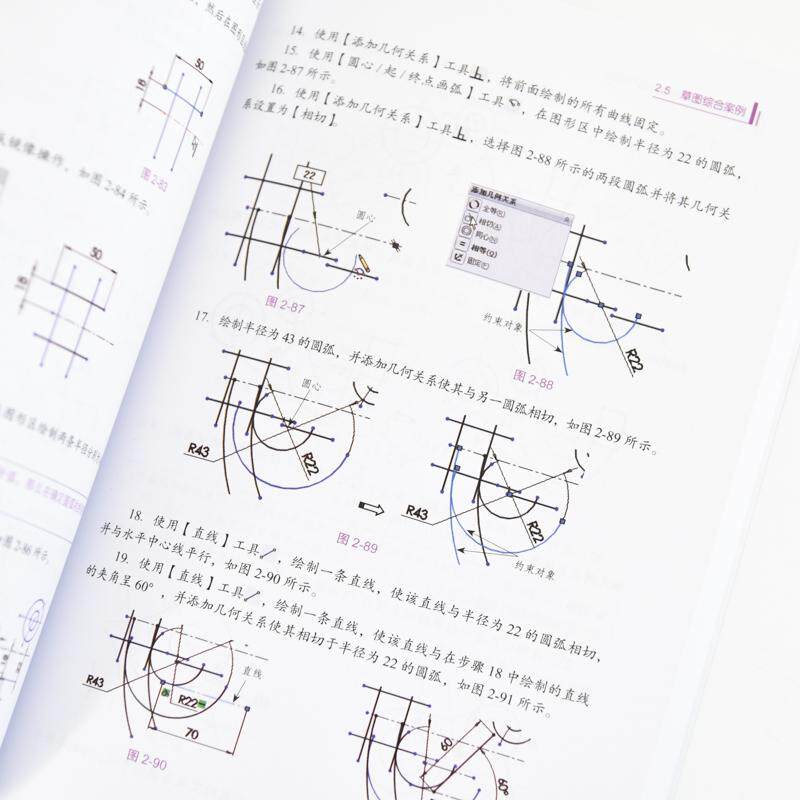 然后在图形
50
18
图 2-83
镜像操作，如图 2-84 所示。
50
18
图形区绘制两条半径分
图 2-86 所示，
2.5 草图综合案例
14. 使用【添加几何关系】工具，将前面绘制的所有曲线固定。
15. 使用【圆心/起/终点画弧】工具，在图形区中绘制半径为 22 的圆弧，
如图 2-87 所示。
16. 使用【添加几何关系】工具，选择图 2-88 所示的两段圆弧并将其几何关
系设置为【相切】。
22
圆心
图 2-87
添加几何关系
全等(R)
相切(A)
同心(N)
相等(Q)
固定(F)
约束对象
R22
图 2-88
17. 绘制半径为 43 的圆弧，并添加几何关系使其与另一圆弧相切，如图 2-89 所示。
圆心
R43
R22
R43
R22
约束对象
图 2-89
18. 使用【直线】工具，绘制一条直线，使该直线与半径为 22 的圆弧相切，
并与水平中心线平行，如图 2-90 所示。
19. 使用【直线】工具，绘制一条直线，使该直线与在步骤 18 中绘制的直线
的夹角呈 60°，并添加几何关系使其相切于半径为 22 的圆弧，如图 2-91 所示。
R43
直线
R22
70
图 2-90
60
60°